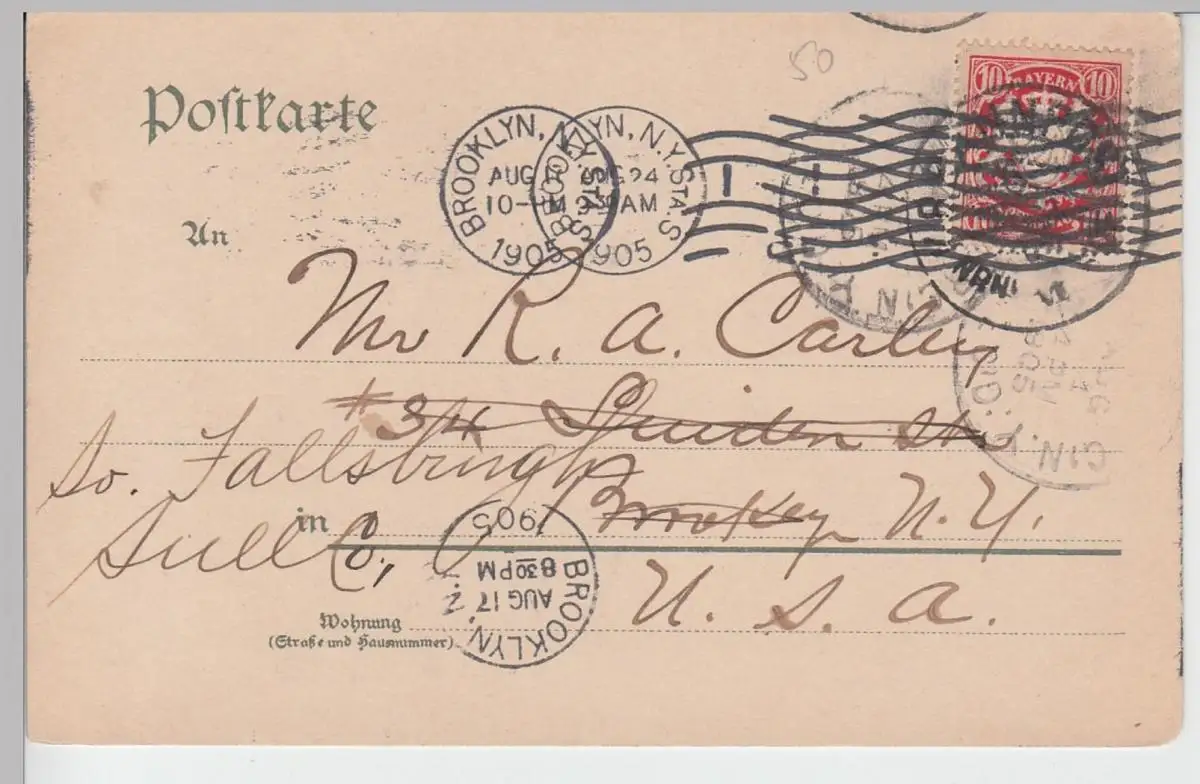 50
10 BAYERN 10
Postkarte
BROOKLYN, N.Y. STA. S
AUG
10- M
1905
BROOKLYN, N.Y. STA. S
AUG 24
9 30 AM
1905
An
Mr R. A. Carley
#34 St.
So. Fallsburgh
N. Y.
in
Sull Co,
U. S. A.
BROOKLYN,
AUG 17
8 30 PM
1905
Wohnung
(Straße und Hausnummer)